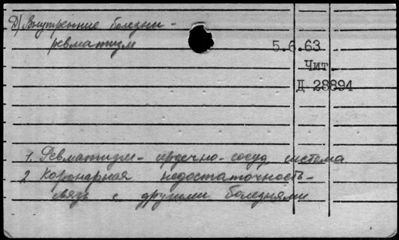 Д) Внутренние болезни -
ревматизм
5.6.63
Чит.
Д 28894
1. Ревматизм - сердечно-сосуд. система
2. Коронарная недостаточность -
связь с другими болезнями